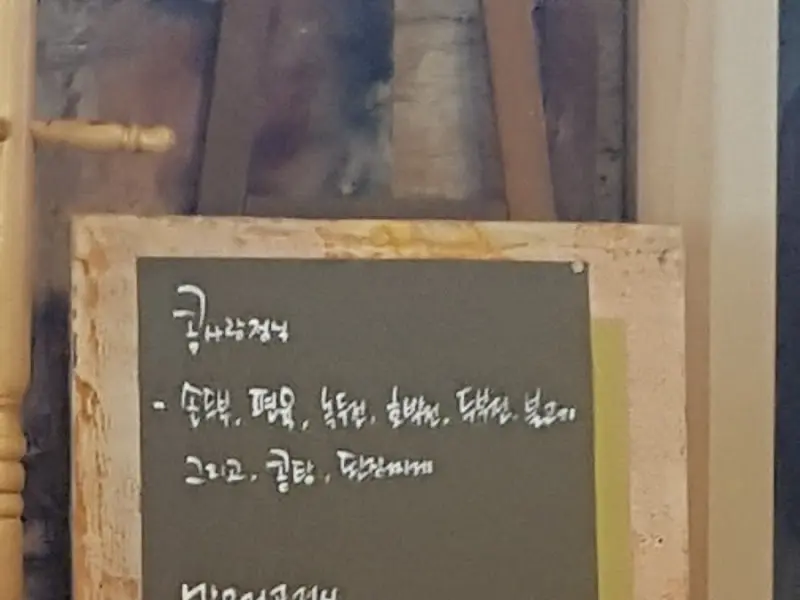 콩사랑정식
- 손두부, 편육, 녹두전, 호박전, 두부전, 불고기
그리고, 콩탕, 된장찌개